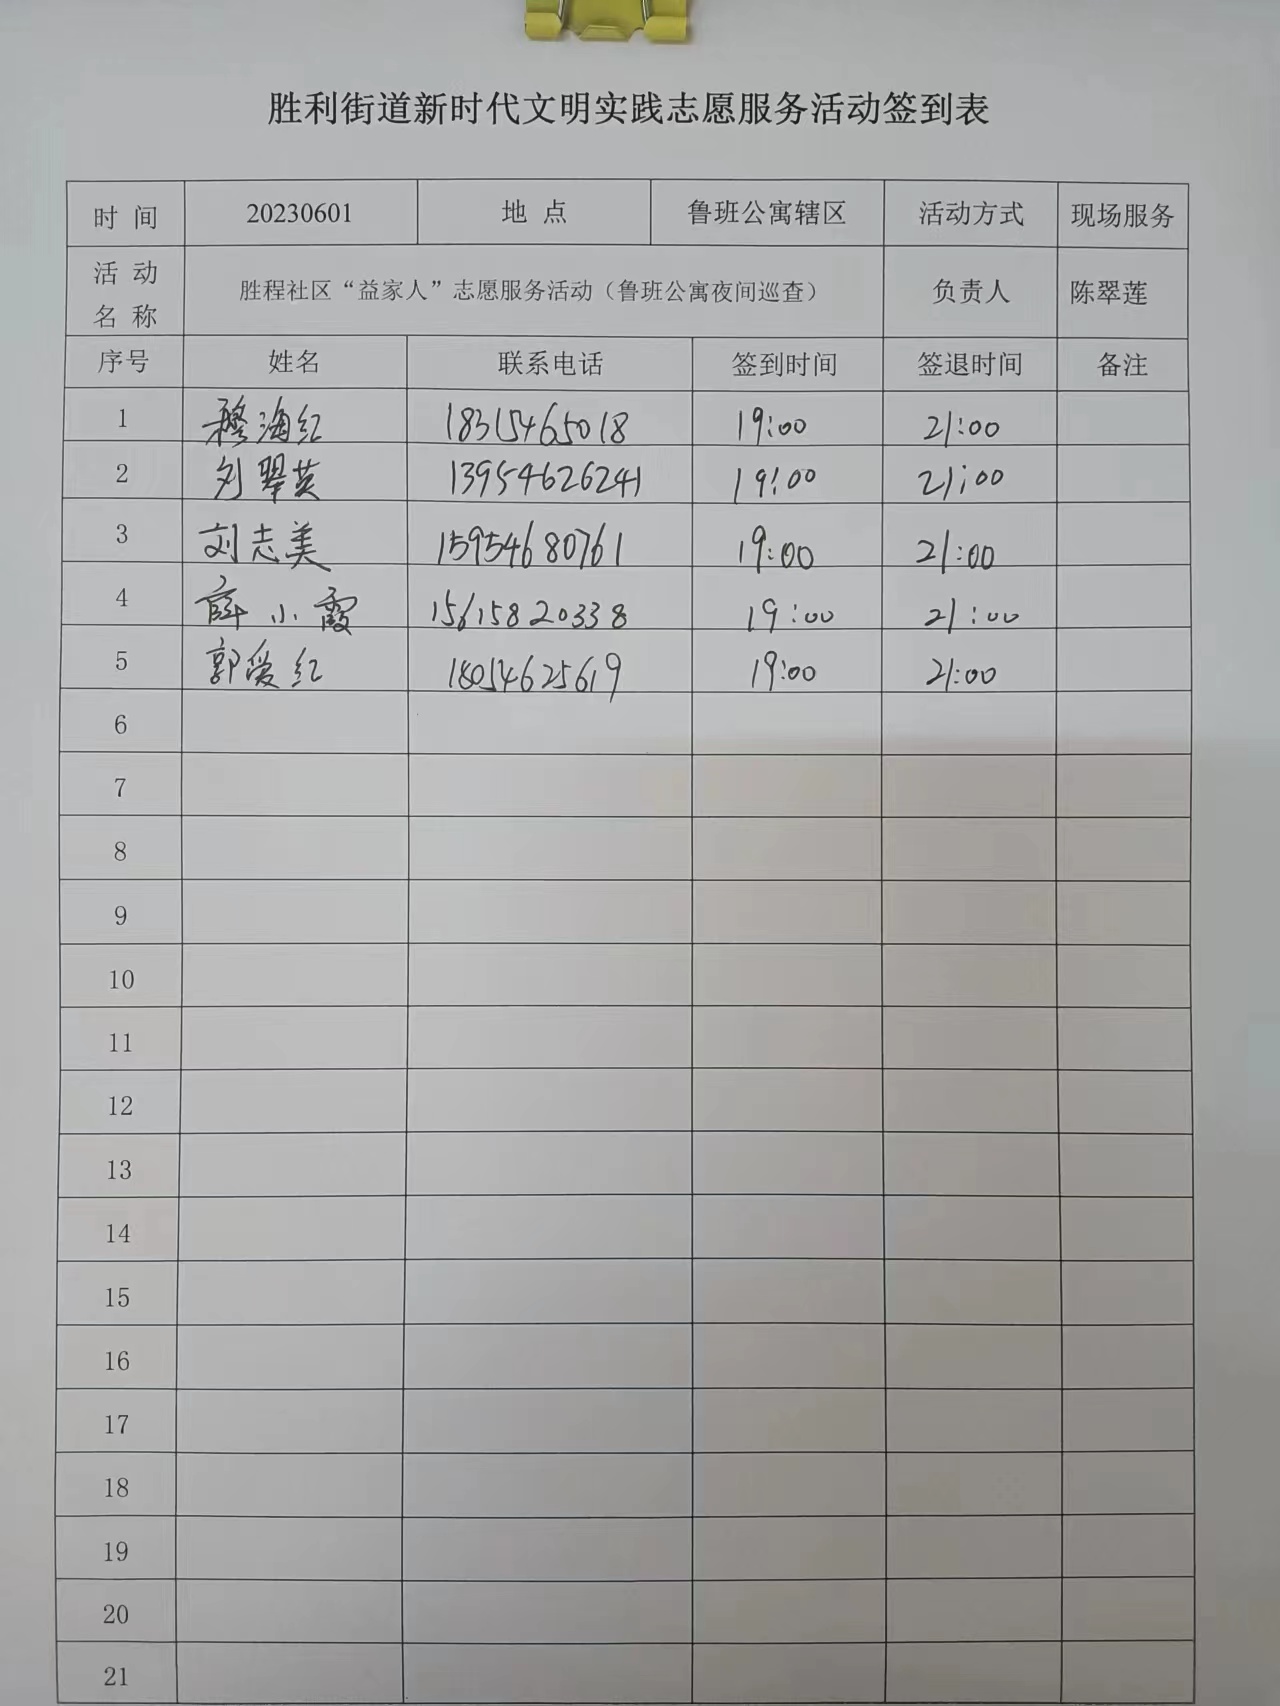 胜利街道新时代文明实践志愿服务活动签到表
时 间 20230601 地 点 鲁班公寓辖区 活动方式 现场服务
活 动 名 称 胜程社区“益家人”志愿服务活动（鲁班公寓夜间巡查） 负责人 陈翠莲
序号 姓名 联系电话 签到时间 签退时间 备注
1 穆海红 18315465018 19:00 21:00
2 刘翠英 13954626241 19:00 21:00
3 刘志美 15954680761 19:00 21:00
4 薛小霞 15615820338 19:00 21:00
5 郭爱红 18054625619 19:00 21:00
6
7
8
9
10
11
12
13
14
15
16
17
18
19
20
21